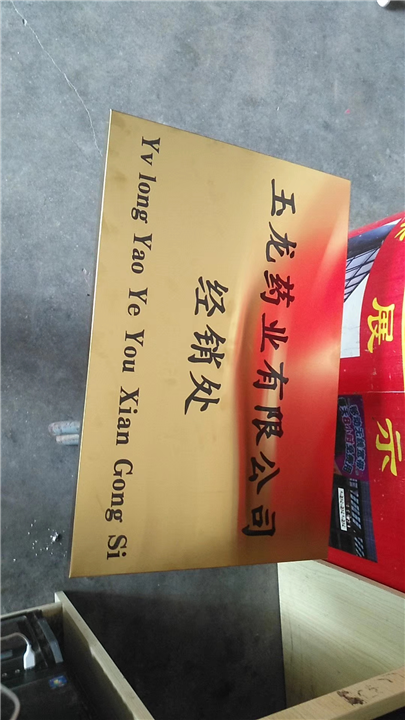 玉龙药业有限公司
经销处
Yv long Yao Ye You Xian Gong Si
展
示